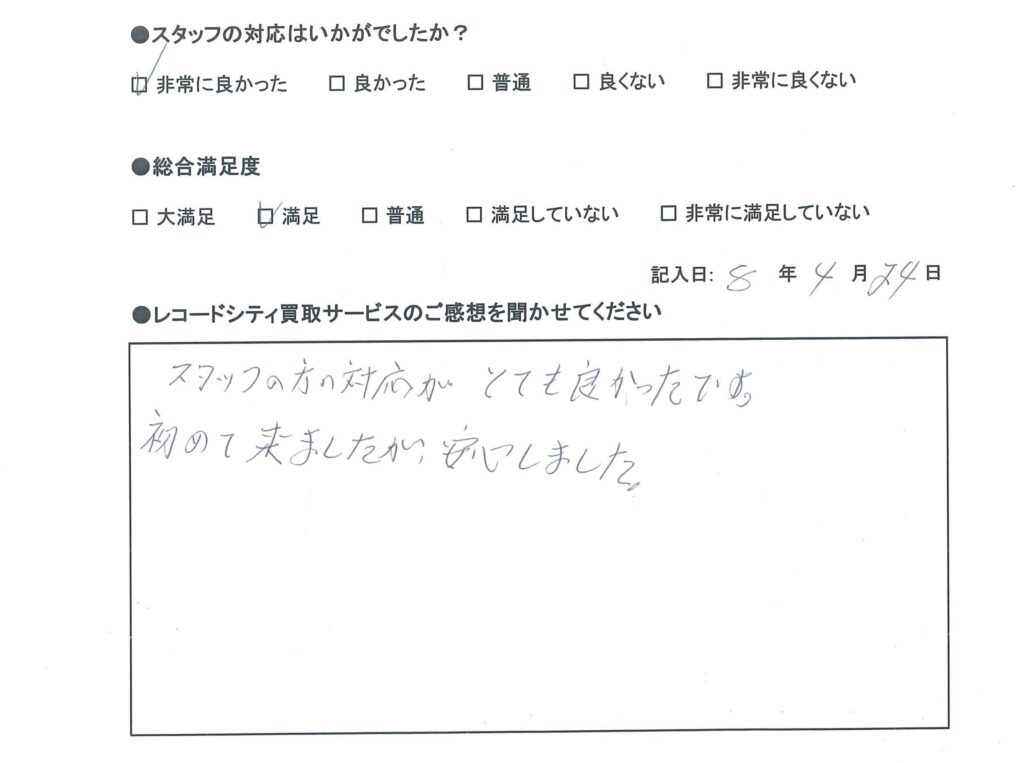 ●スタッフの対応はいかがでしたか?
☑ 非常に良かった □ 良かった □ 普通 □ 良くない □ 非常に良くない
●総合満足度
□ 大満足 ☑ 満足 □ 普通 □ 満足していない □ 非常に満足していない
記入日: 8 年 4 月 24 日
●レコードシティ買取サービスのご感想を聞かせてください
スタッフの方の対応が とても良かったです。
初めて来ましたが、安心しました。